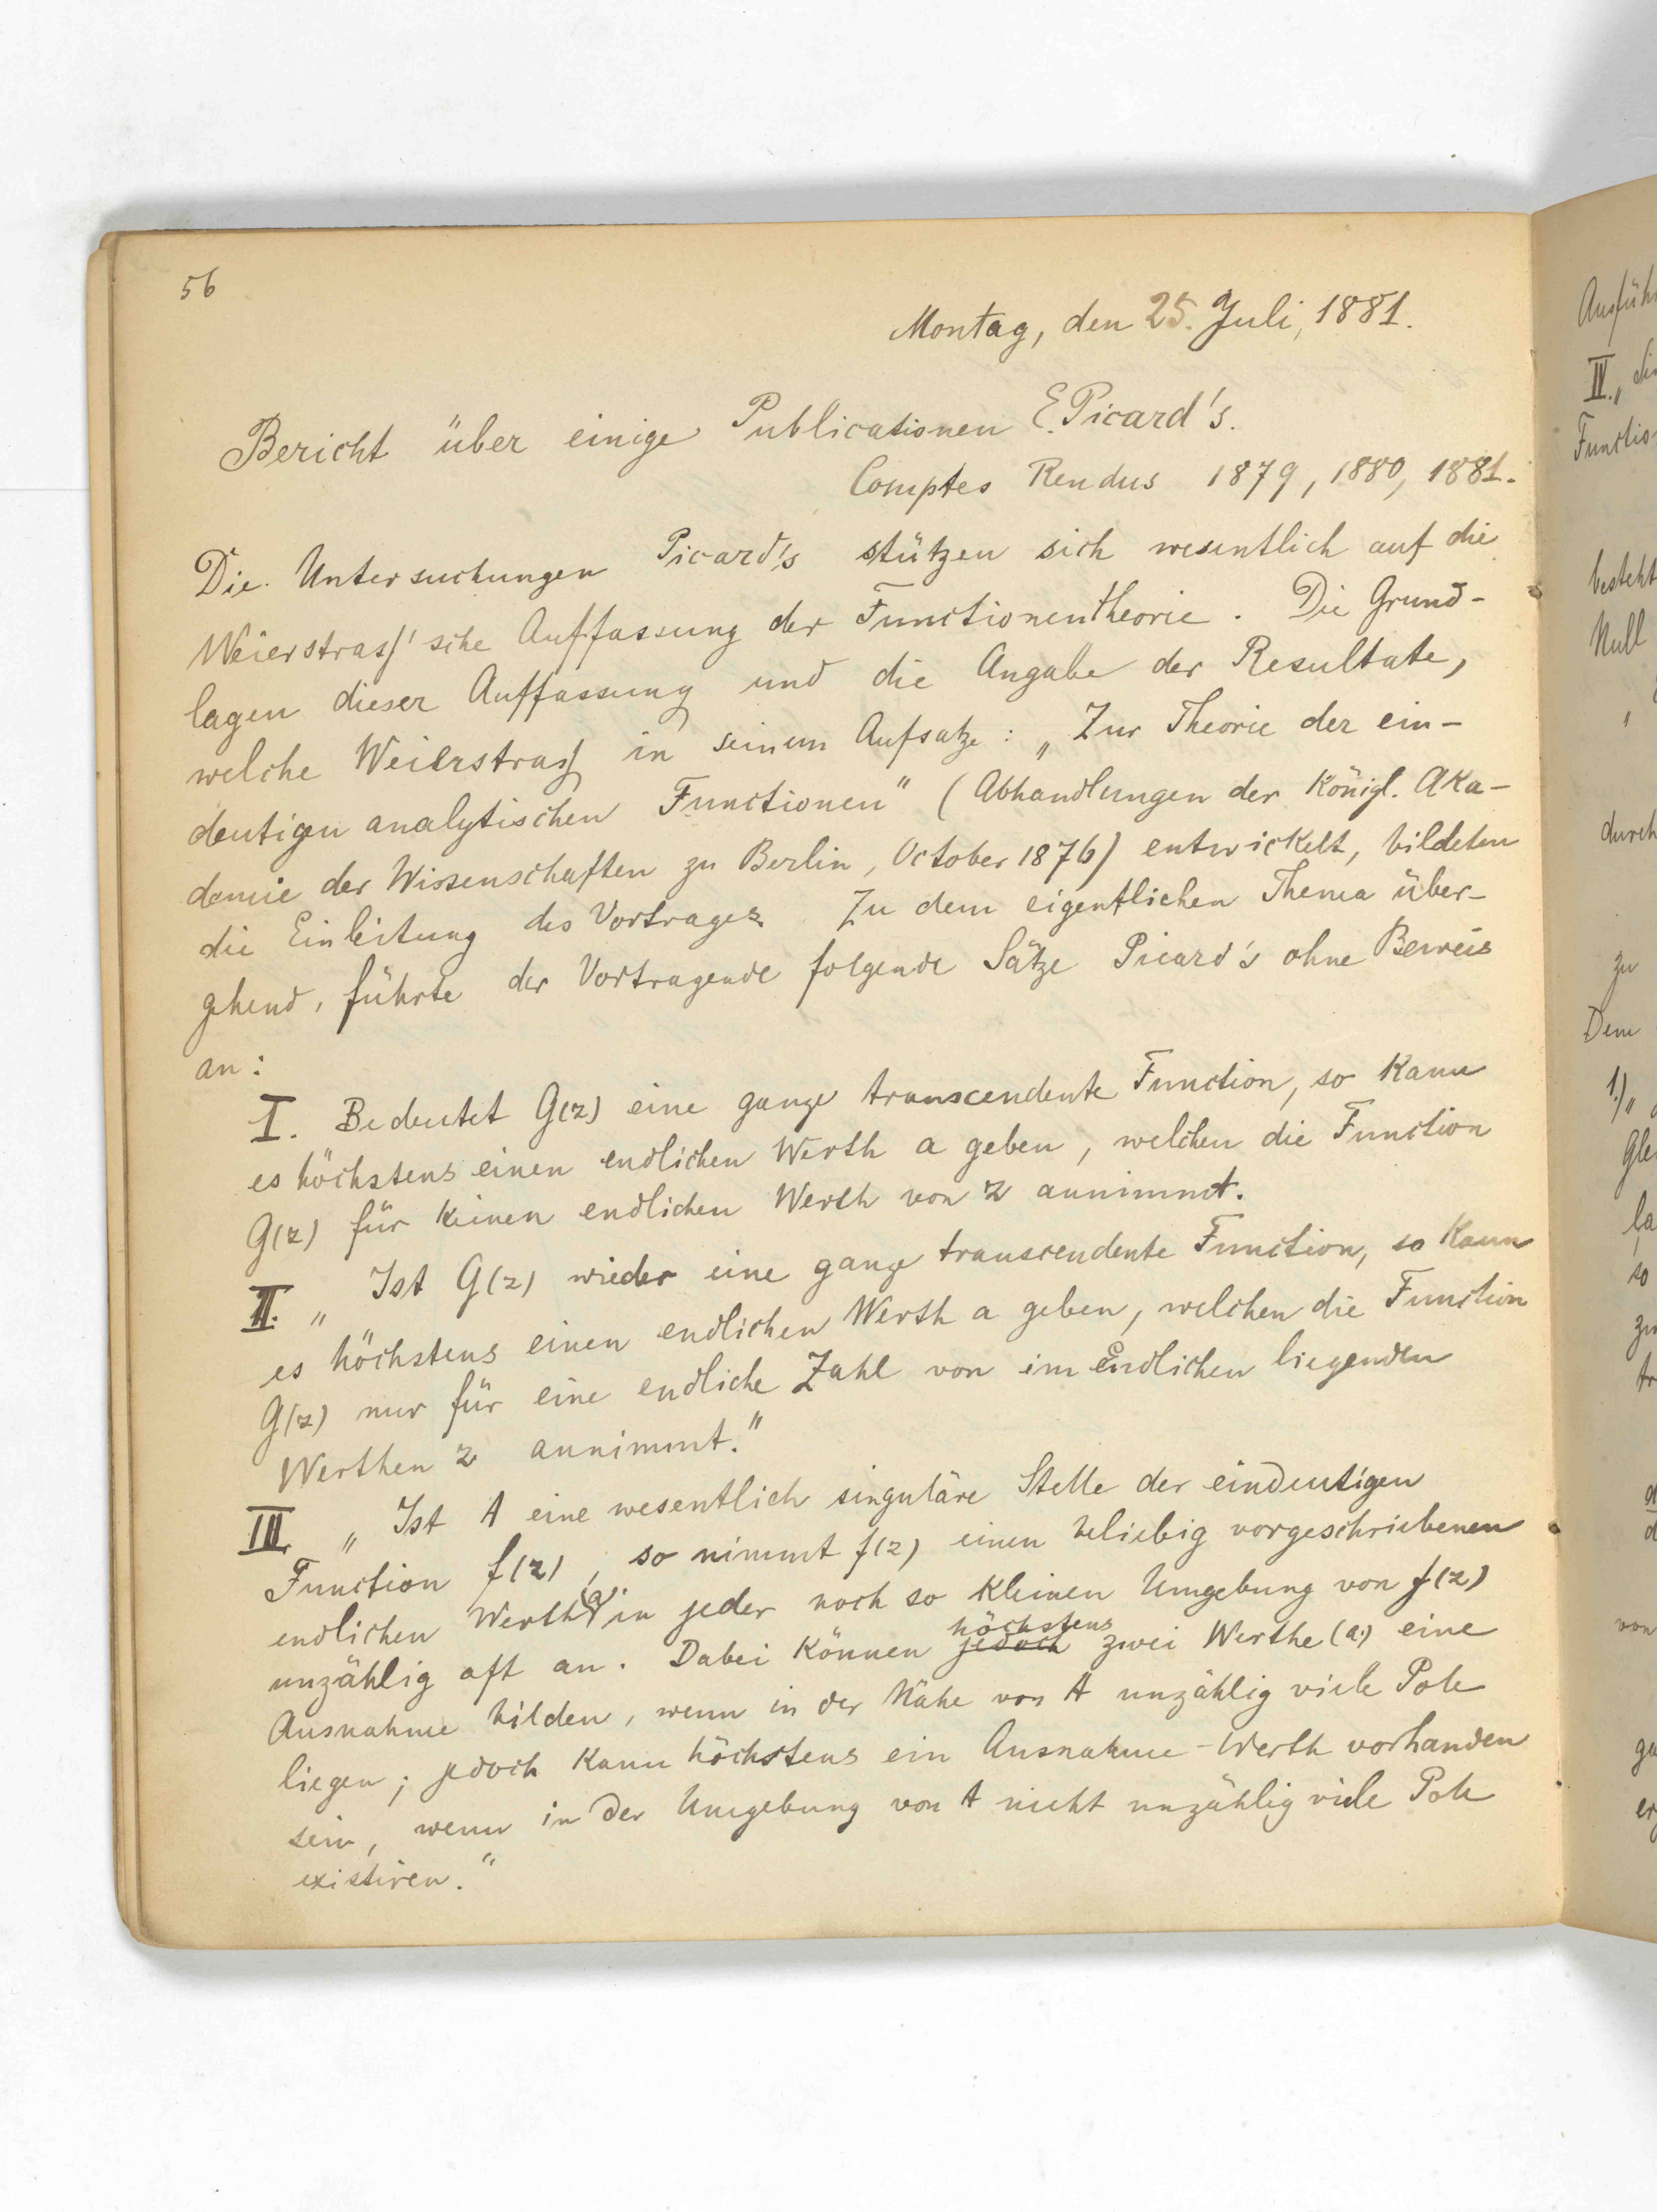 56
Montag, den 25. Juli, 1881.
Bericht über einige Publicationen E. Picard's.
Comptes Rendus 1879, 1880, 1881.
Die Untersuchungen Picard's stützen sich wesentlich auf die
Weierstraß'sche Auffassung der Functionentheorie. Die Grund-
lagen dieser Auffassung und die Angabe der Resultate,
welche Weierstraß in seinem Aufsatze: „Zur Theorie der ein-
deutigen analytischen Functionen" (Abhandlungen der Königl. Aka-
demie der Wissenschaften zu Berlin, October 1876) entwickelt, bildeten
die Einleitung des Vortrages. Zu dem eigentlichen Thema über-
gehend, führte der Vortragende folgende Sätze Picard's ohne Beweis
an:
I. Bedeutet G(z) eine ganze transcendente Function, so kann
es höchstens einen endlichen Werth a geben, welchen die Function
G(z) für keinen endlichen Werth von z annimmt.
II. „Ist G(z) wieder eine ganze transcendente Function, so kann
es höchstens einen endlichen Werth a geben, welchen die Function
G(z) nur für eine endliche Zahl von im Endlichen liegenden
Werthen z annimmt."
III. „Ist A eine wesentlich singuläre Stelle der eindeutigen
Function f(z), so nimmt f(z) einen beliebig vorgeschriebenen
endlichen Werth (a) in jeder noch so kleinen Umgebung von f(z)
unzählig oft an. Dabei können jedoch höchstens zwei Werthe (a) eine
Ausnahme bilden, wenn in der Nähe von A unzählig viele Pole
liegen; jedoch kann höchstens ein Ausnahme-Werth vorhanden
sein, wenn in der Umgebung von A nicht unzählig viele Pole
existiren."
Ausfüh
IV. „
Functio
besteht
Null
durch
zu
Dem
1.) „
la
so
von